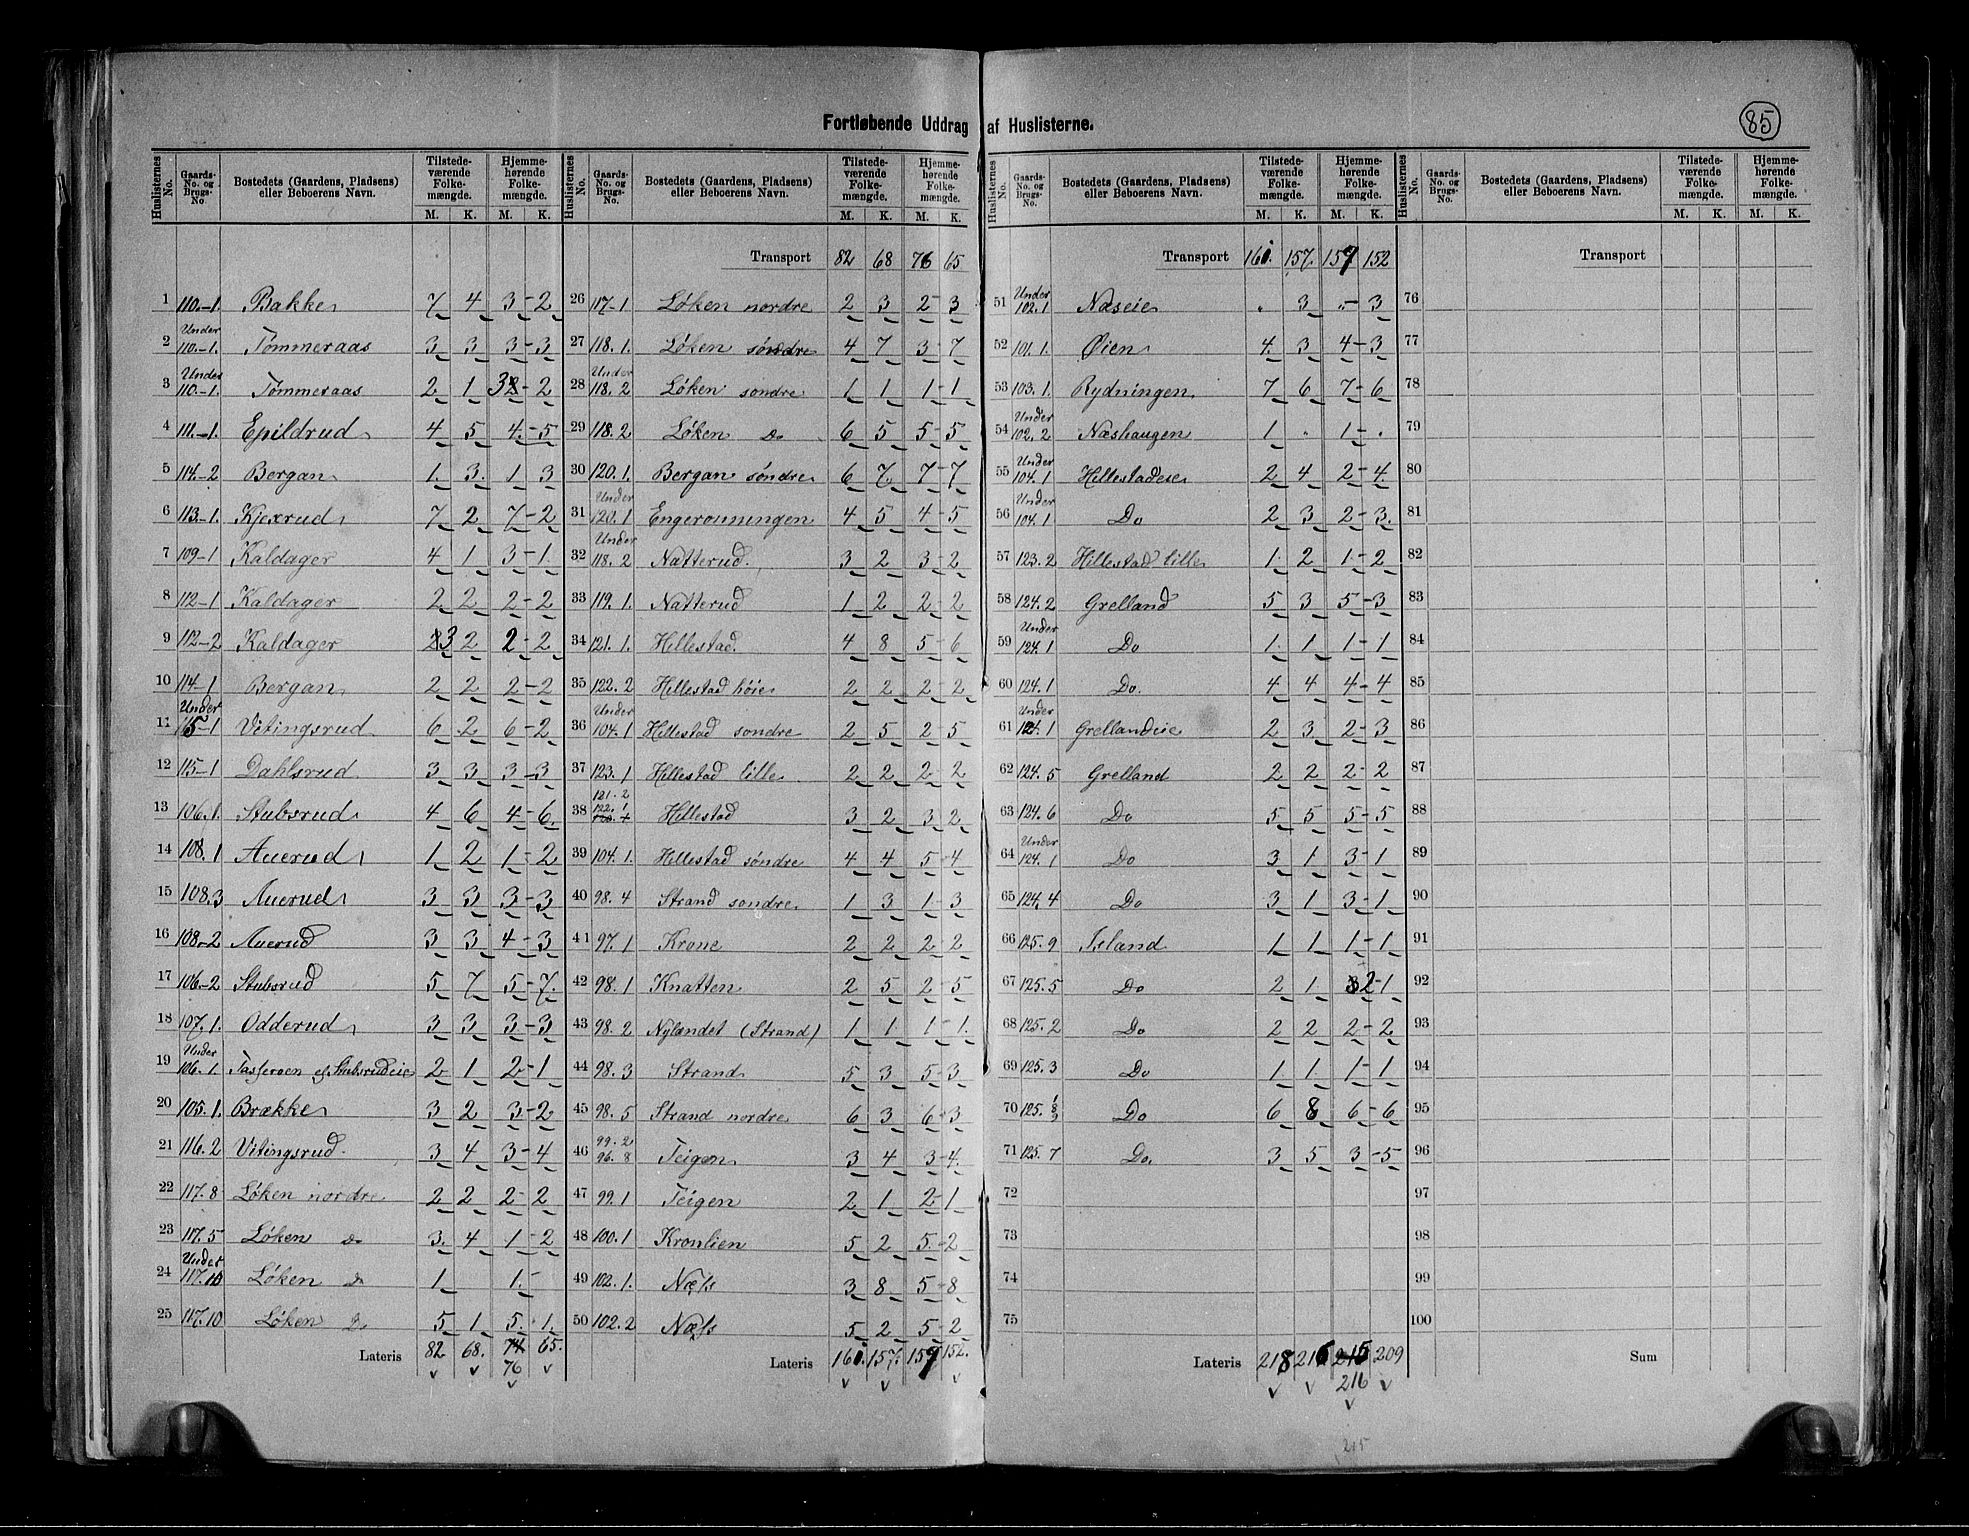 Fortløbende Uddrag af Huslisterne.
85
Huslisternes No. | Gaards-No. og Brugs-No. | Bostedets (Gaardens, Pladsens) eller Beboerens Navn. | Tilstedeværende Folkemængde. M. K. | Hjemmehørende Folkemængde. M. K.
1 110.-1. Bakke 7 4 3-2
2 Under 110.-1. Tømmeraas 3 3 3-3
3 Under 110.-1. Tømmeraas 2 1 3-2
4 111.-1. Epildrud 4 5 4-5
5 114.-2 Bergan 1. 3. 1 3
6 113.-1. Kjexrud 7 2 7-2
7 109-1 Kaldager 4 1 3-1.
8 112-1 Kaldager 2 2 2-2
9 112-2 Kaldager 3 2 2-2
10 114-1 Bergan 2 2 2-2
11 Under 115-1 Vitingsrud 6 2 6-2
12 115-1 Dahlsrud 3 3 3-3
13 106.1. Stubsrud 4 6 4-6.
14 108.1 Auerud 1 2 1-2
15 108.3 Auerud 3 3 3-3
16 108-2 Auerud 3 3 4-3
17 106.-2 Stubsrud 5 7 5-7.
18 107.1. Odderud 3 3 3-3
19 Under 106.1. Stubsrudeie 2 1 2-1
20 105.1. Brække 3 2 3-2
21 116.2 Vitingsrud 3 4 3-4
22 117.8 Løken nordre 2 2 2-2
23 117.5 Løken Do 3. 4 1-2
24 Under 117.10 Løken Do 1 1.-
25 117.10 Løken Do 5 1 5.1.
Lateris 82 68. 74 65.
76
Transport 82 68 76 65
26 117-1 Løken nordre 2 3 2-3
27 118.1. Løken søndre 4 7 3-7
28 Under 118.2 Løken sondre 1 1 1-1
29 118.2 Løken Do 6 5 5-5
30 120.1. Bergan søndre 6 7 7-7
31 Under 120.1 Engeronningen 4 5 4-5
32 Under 118.2 Natterud. 3 2 3-2
33 119.1. Natterud 1 2 2-2
34 121.1. Hillestad. 4 8 5-6
35 122.2 Hillestad høie 2 2 2-2
36 Under 104.1 Hillestad sondre 2 5 2-5
37 123.1 Hillestad lille 2 2 2-2
38 121.2 122.1 Hillestad 3 2 3 2
39 104.1. Hillestad søndre 4 4 5-4
40 98.4 Strand sondre 1 3 1-3
41 97.1 Krone 2 2 2-2
42 98.1 Knatten 2 5 2-5
43 98.2 Nylandet (Strand) 1 1 1-1.
44 98.3 Strand 5 3 5-3
45 98.5 Strand nordre 6 3 6-3
46 99.2 96.8 Teigen 3 4 3-4.
47 99.1 Teigen 2 1 2-1
48 100.1 Kronlien 5 2 5-2
49 102.1. Næss 3 8 5-8
50 102.2 Næss 5 2 5-2
Lateris 160. 157. 159 152.
Transport 160. 157. 159 152
51 Under 102.1 Næseie " 3 "-3
52 101.1. Øien 4. 3 4-3
53 103.1. Rydningen 7 6 7-6
54 Under 102.2 Næshaugen 1 " 1-"
55 Under 104.1 Hillestadeie 2 4 2-4.
56 Under 104.1 Do 2 3 2-3.
57 123.2 Hillestad lille 1. 2 1-2
58 124.2 Grelland 5 3 5-3
59 Under 124.1 Do 1. 1 1-1
60 124.1 Do. 4 4 4-4
61 Under 124.1 Grellandeie 2 3 2-3
62 124.5 Grelland 2 2 2-2
63 124.6 Do 5 5 5-5
64 Under 124.1 Do 3 1 3-1
65 124.4 Do 3 1 3-1
66 125.9 Island 1 1 1-1
67 125.5 Do 2 1 2-1
68 125.2 Do 2 2 2-2
69 125.3 Do 1 1 1-1
70 125. Do 6 8 6-6
71 125.7 Do. 3 5 3-5
72
73
74
75
Lateris 218 216 215 209
216
215
Transport
76
77
78
79
80
81
82
83
84
85
86
87
88
89
90
91
92
93
94
95
96
97
98
99
100
Sum